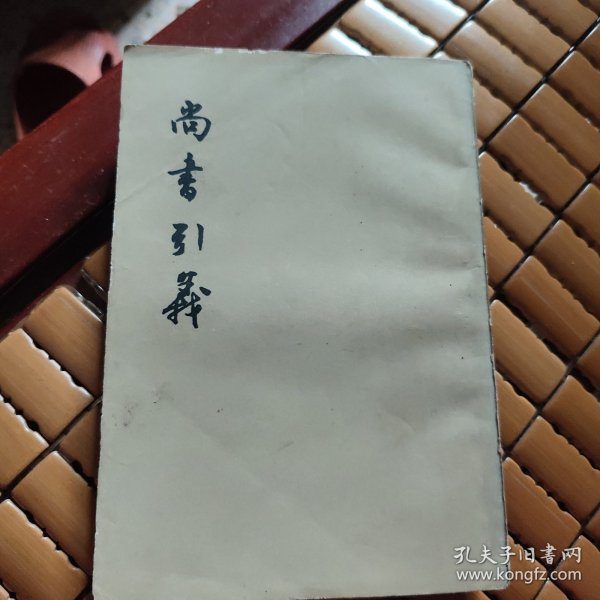 尚书引义
孔夫子旧书网
www.kongfz.com